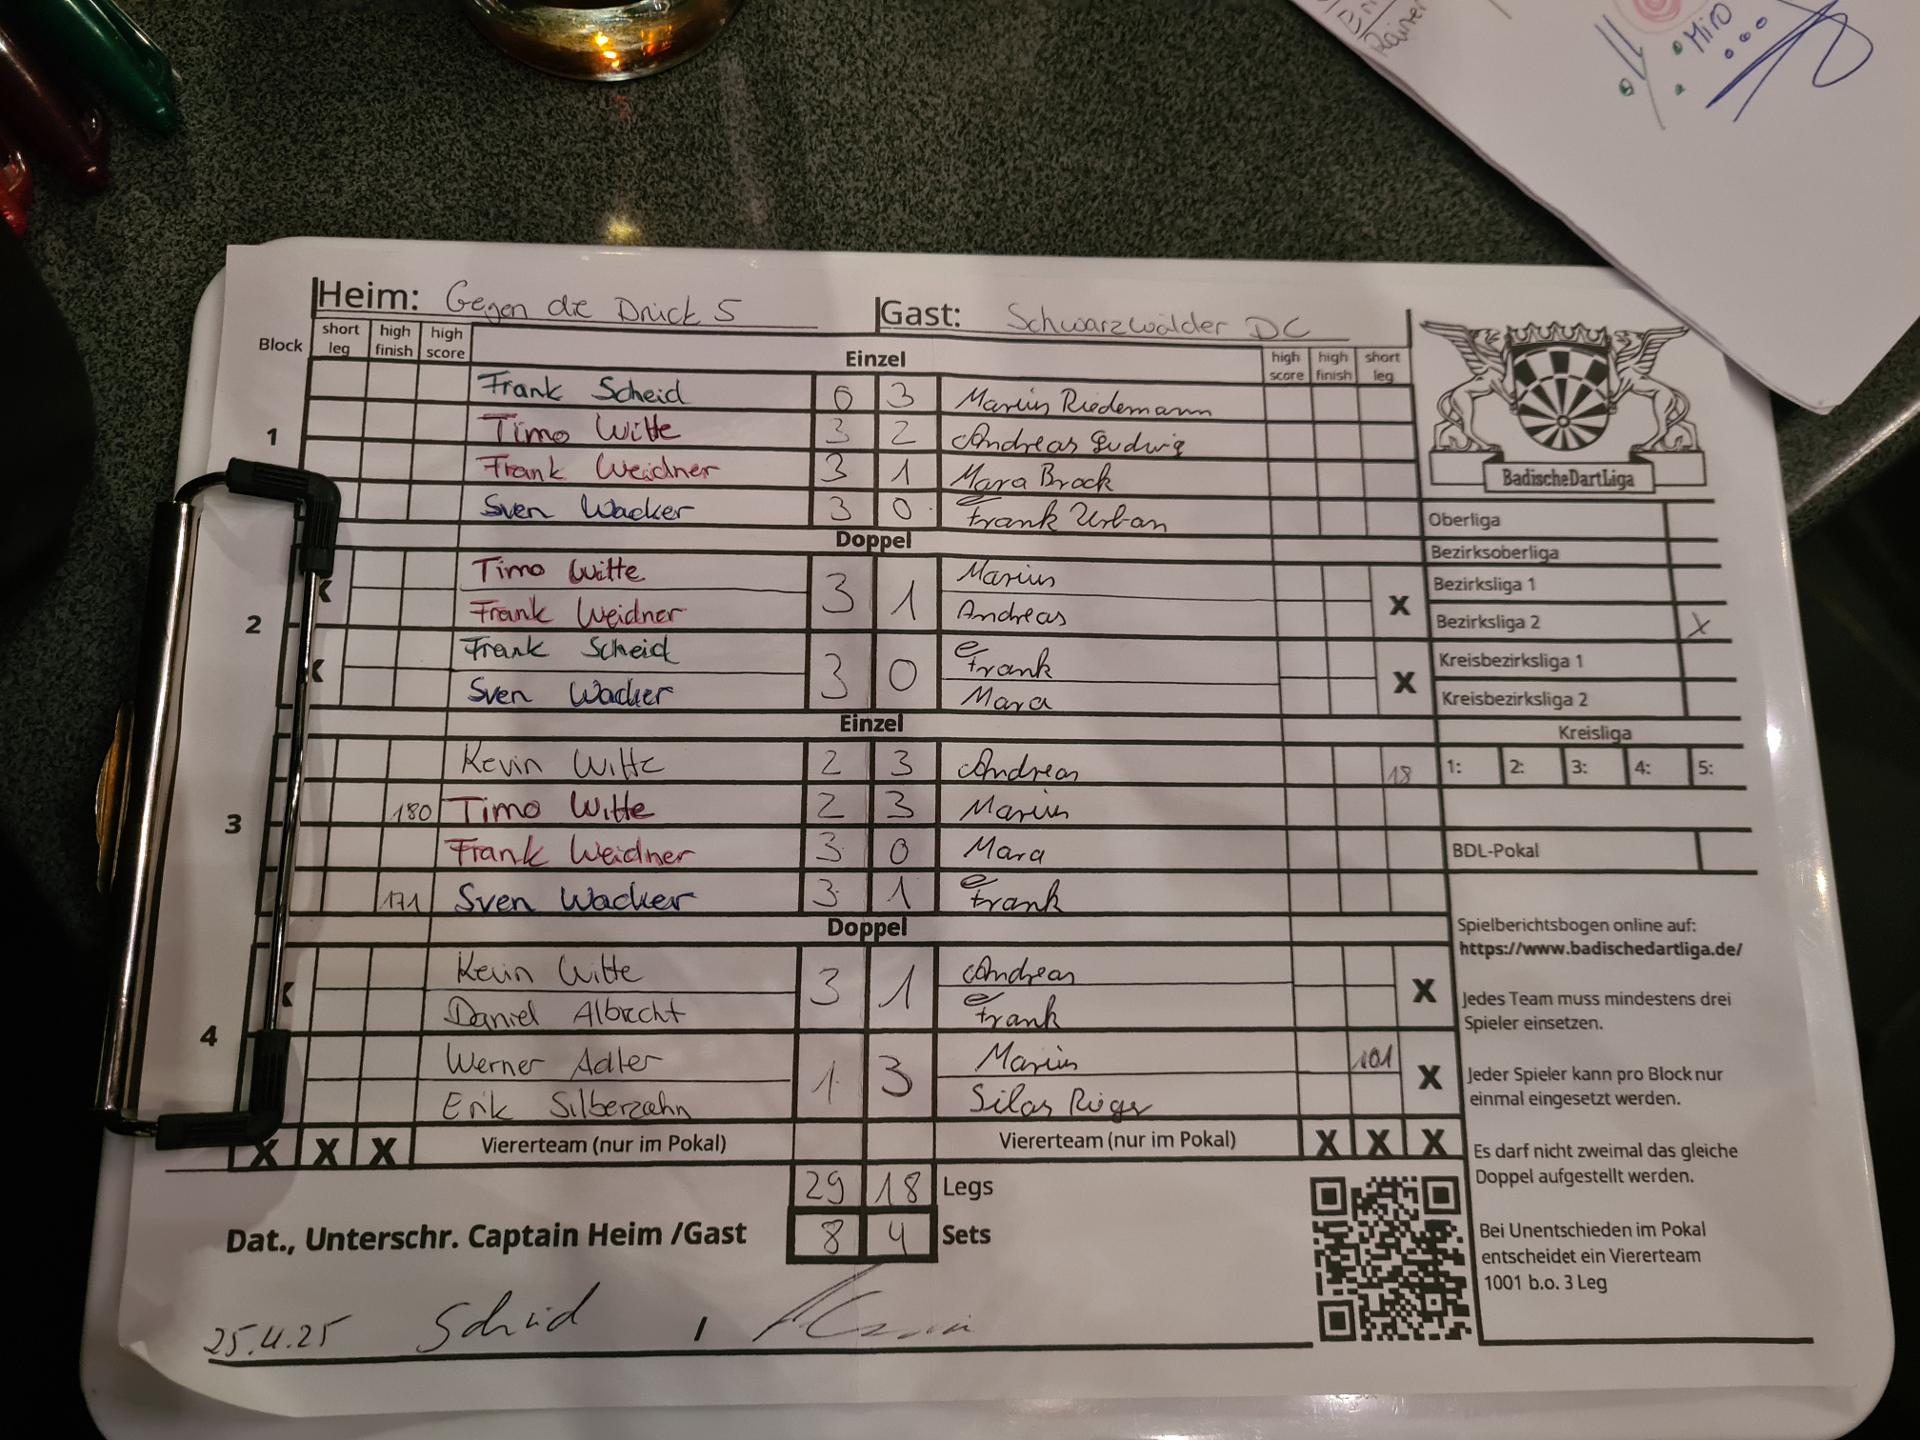 Miro
Heim: Gegen die Drück 5 Gast: Schwarzwälder DC
Block short leg high finish high score Einzel high score high finish short leg
Frank Scheid 0 3 Marius Riedemann
1 Timo Witte 3 2 Andreas Ludwig
Frank Weidner 3 1 Mara Brock
Sven Wacker 3 0 Frank Urban
Doppel
2 Timo Witte 3 1 Marius X
Frank Weidner Andreas
Frank Scheid 3 0 Frank X
Sven Wacker Mara
Einzel
Kevin Witte 2 3 Andreas 18
3 180 Timo Witte 2 3 Marius
Frank Weidner 3 0 Mara
171 Sven Wacker 3 1 Frank
Doppel
4 Kevin Witte 3 1 Andreas X
Daniel Albrecht Frank
Werner Adler 1 3 Marius 101 X
Erik Silberzahn Silas Rüger
X X X Viererteam (nur im Pokal) Viererteam (nur im Pokal) X X X
29 18 Legs
Dat., Unterschr. Captain Heim /Gast 8 4 Sets
25.4.25 Scheid /
BadischeDartLiga
Oberliga
Bezirksoberliga
Bezirksliga 1
Bezirksliga 2 X
Kreisbezirksliga 1
Kreisbezirksliga 2
Kreisliga
1: 2: 3: 4: 5:
BDL-Pokal
Spielberichtsbogen online auf:
https://www.badischedartliga.de/
Jedes Team muss mindestens drei
Spieler einsetzen.
Jeder Spieler kann pro Block nur
einmal eingesetzt werden.
Es darf nicht zweimal das gleiche
Doppel aufgestellt werden.
Bei Unentschieden im Pokal
entscheidet ein Viererteam
1001 b.o. 3 Leg